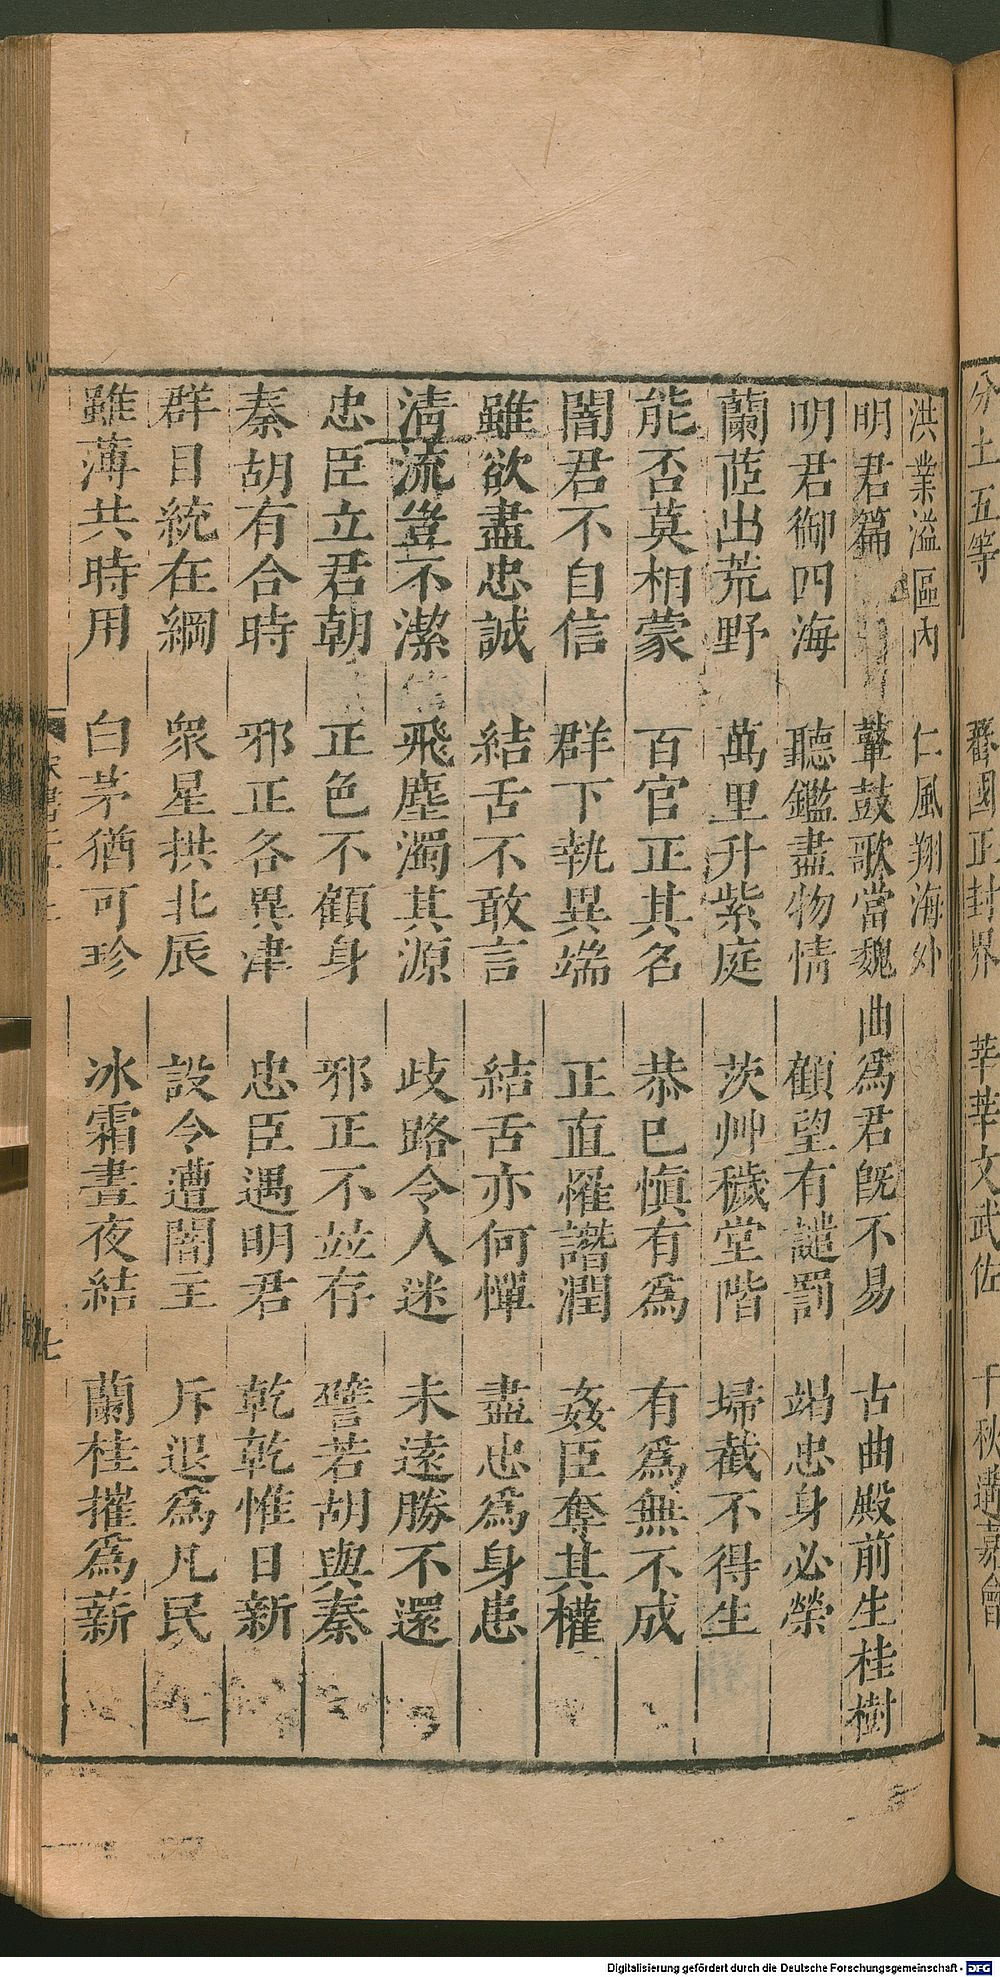 分土五等 番國正封界 莘莘文武佐 千秋遘嘉會
洪業溢區內 仁風翔海外
明君篇 鼙鼓歌當魏曲為君既不易 古曲殿前生桂樹
明君御四海 聽鑑盡物情 顧望有譴罰 竭忠身必榮
蘭茝出荒野 萬里升紫庭 茨艸穢堂階 埽截不得生
能否莫相蒙 百官正其名 恭已慎有為 有為無不成
闇君不自信 群下執異端 正直懼譖潤 姦臣奪其權
雖欲盡忠誠 結舌不敢言 結舌亦何憚 盡忠為身患
清流豈不潔 飛塵濁其源 歧路令人迷 未遠勝不還
忠臣立君朝 正色不顧身 邪正不竝存 譬若胡與秦
秦胡有合時 邪正各異津 忠臣遇明君 乾乾惟日新
群目統在綱 衆星拱北辰 設令遭闇主 斥退為凡民
雖薄共時用 白茅猶可珍 冰霜晝夜結 蘭桂摧為薪
七
Digitalisierung gefördert durch die Deutsche Forschungsgemeinschaft - DFG